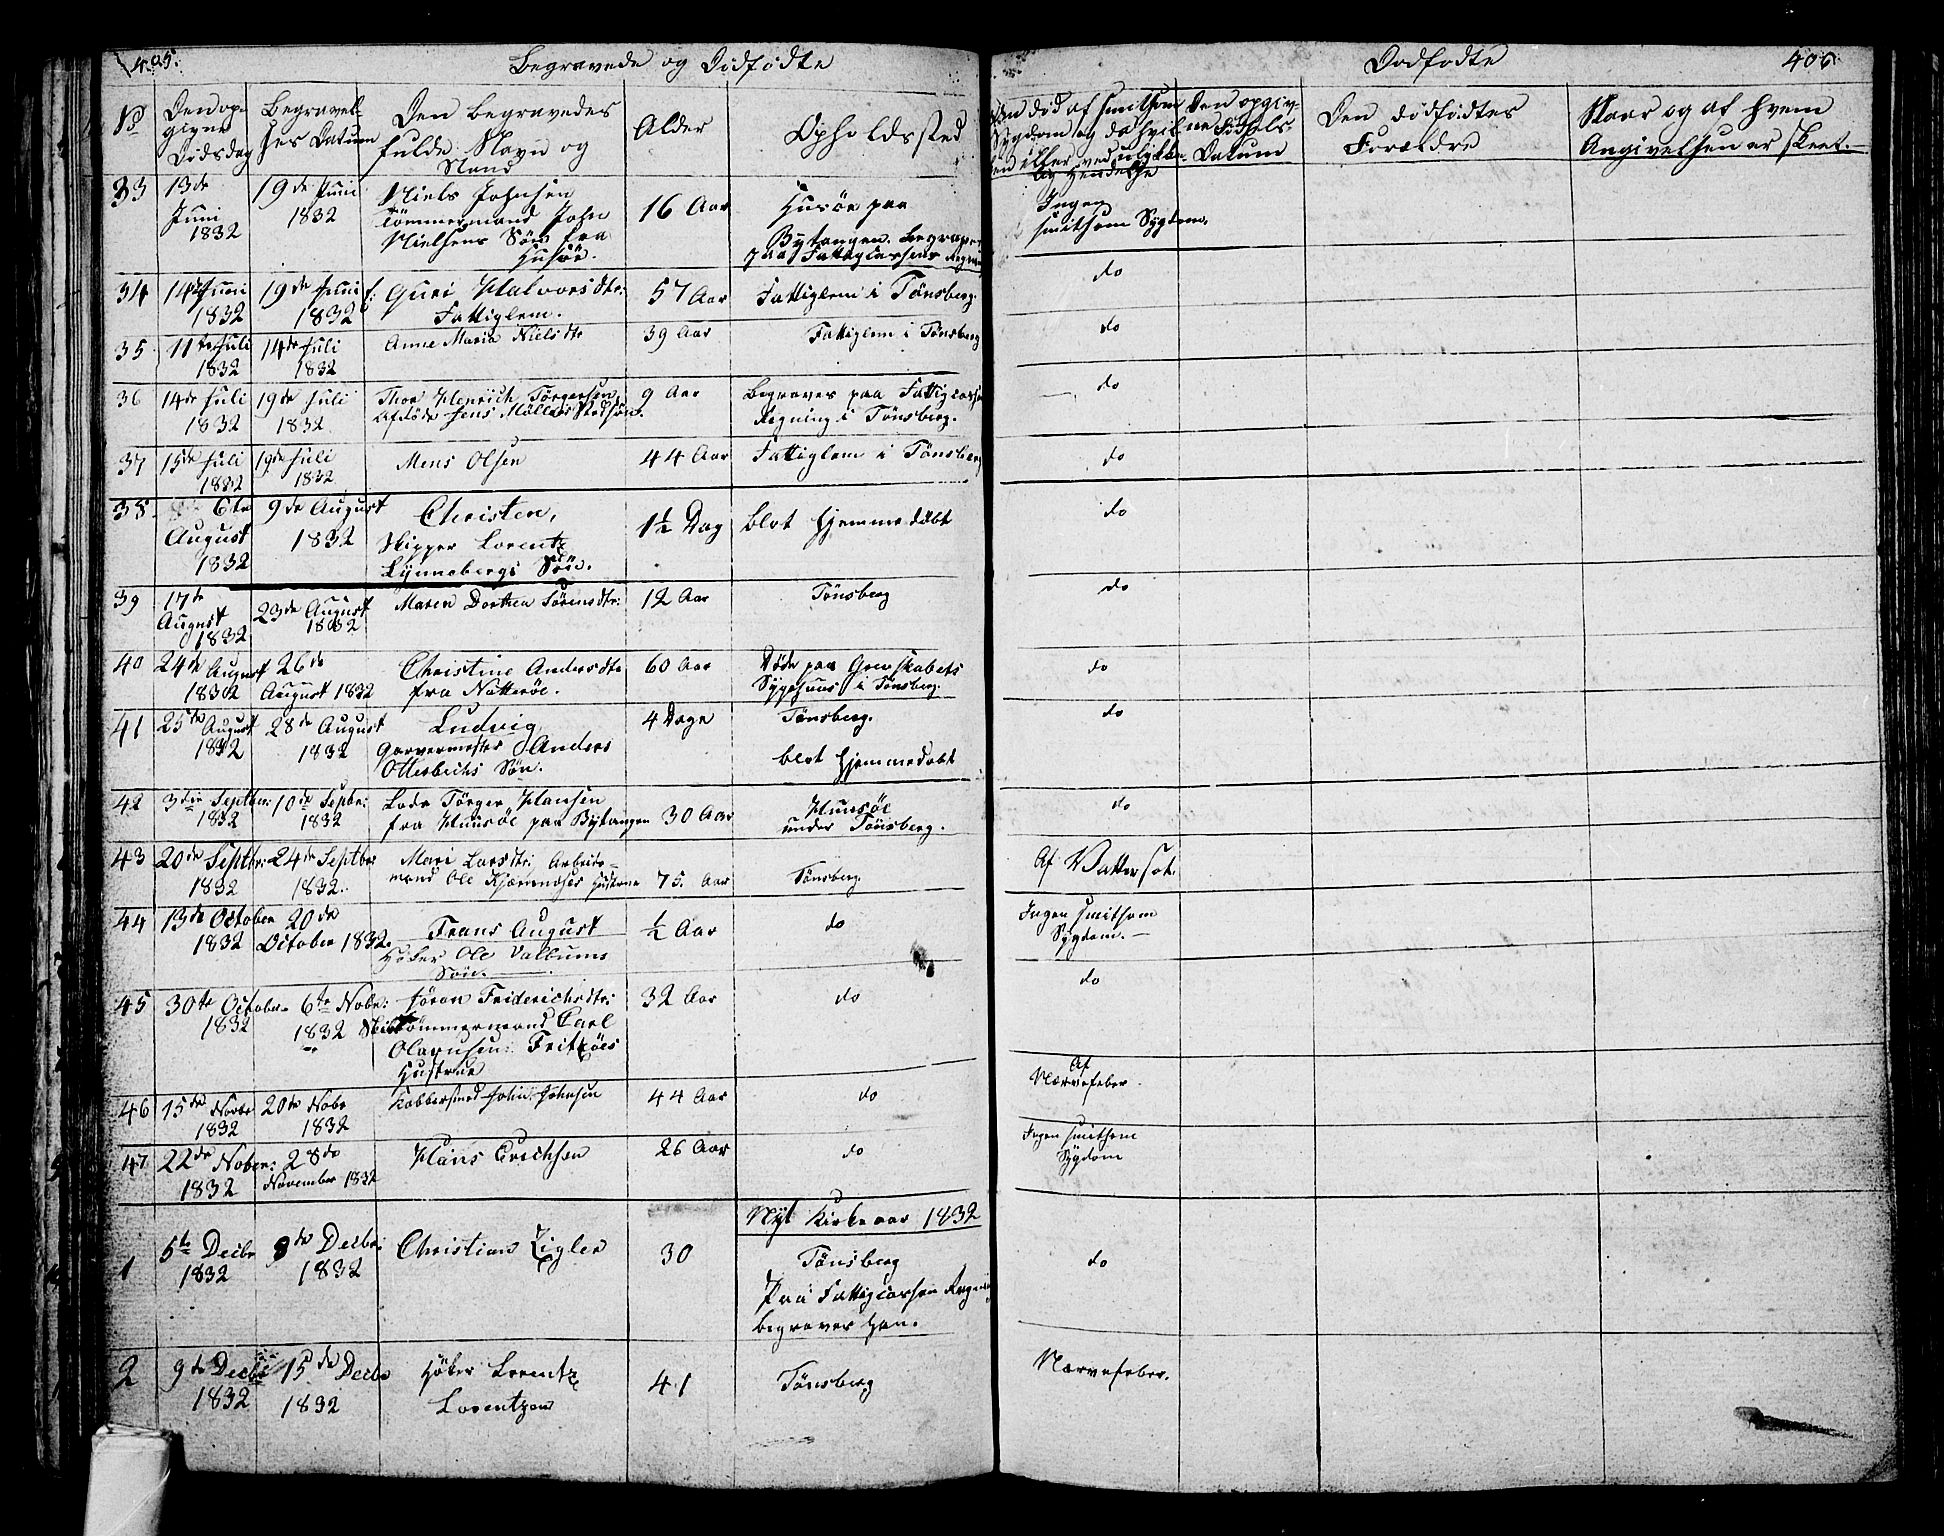 405. Begravede og Dödfödte
No
Den op-
givne
Dödsdag
Begravel-
ses Datum
Den begravedes
fulde Navn og
Stand
Alder
Opholdssted
33 13de Juni 1832 19de Juni 1832 Niels Johnsen
Tömmermand John
Nielsens Sön fra
Husöe.
16 Aar
Husöe paa
Bytangen. begraves
paa Fattigcassens Regning
34 14de Juni 1832 19de Juni 1832 Guri Halvorsdtr:
Fattiglem.
57 Aar Fattiglem i Tönsberg.
35 11te Juli 1832 14de Juli 1832 Anne Maria Nielsdtr 39 Aar Fattiglem i Tönsberg
36 14de Juli 1832 19de Juli 1832 Thor Henrich Törgersen,
afdöde Jens Möllers Stedsön.
9 Aar begraves paa Fattigcassens
Regning i Tönsberg.
37 15de Juli 1832 19de Juli 1832 Mens Olsen 44 Aar Fattiglem i Tönsberg
38 6te August 1832 9de August 1832 Christen,
Skipper Lorentz
Lÿnnebergs Sön.
1½ Dag blot hjemmedöbt
39 17de August 1832 23de August 1832 Maren Dorthea Sörensdtr: 12 Aar Tönsberg
40 24de August 1832 26de August 1832 Christine Andersdtr
fra Nötteröe.
60 Aar Döde paa Grevskabets
Sygehuus i Tönsberg.
41 25de August 1832 28de August 1832 Ludvig
Garvermester Anders
Otterbechs Sön.
4 Dage Tönsberg.
blot hjemmedöbt
42 3die Septbr: 1832 10de Septbr: 1832 Lods Törger Hansen
fra Huusöe paa Bytangen
30 Aar Huusöe
under Tönsberg.
43 20de Septbr: 1832 24de Septbr 1832. Mari Larsdtr: Arbeids-
mand Ole Kjæmmoses Hustrue
75. Aar Tönsberg.
44 13de October 1832 20de October 1832. Frans August
Höker Ole Valbums
Sön.
½ Aar do
45 30te October 1832 6te Nobr: 1832 Sören Friderichsdtr:
Skibtömmermand Carl
Olavusen Fritzöes
Hustrue
32 Aar do
46 15de Novbr 1832 20de Nobr 1832 Kobbersmed John Johnsen 44 Aar do
47 22de Nobr: 1832 28de November 1832 Hans Erichsen 26 Aar do
Nÿt Kirkeaar 1832
1 5te Decbr 1832 8de Decbr: 1832 Christian Zigler 30 Tönsberg
Paa Fattigcassen Regning
begraves han.
2 9de Decbr 1832 15de Decbr 1832 Höker Lorentz
Lorentzen
41 Tönsberg
Dödfödte 406
Om död af smitsom
Sygdom og da hvil-
en eller ved ulykke-
lig Hendelse
Den opgiv-
ne Födsels-
Datum
Den dödfödtes
Forældre
Naar og af hvem
Angivelsen er skeet.
Ingen
smitsom Sygdom.
do
do
do
do
do
do
do
do
do
Af Vattersot.
Ingen smitsom
Sygdom.
do
Af
Nærvefeber.
Ingen smitsom
Sygdom
do
Nærvefeber.